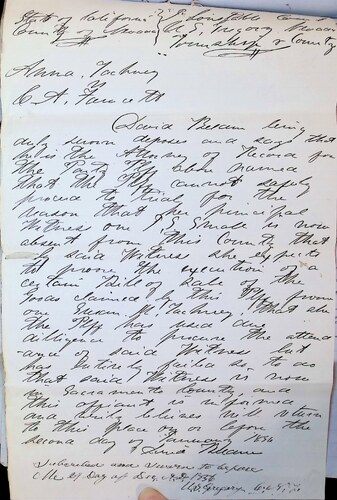 State of California
County of
Township & County
Anna Tackney
vs
C. A. Fawcett
David Belden being
duly sworn deposes and says that
he is the Attorney of Record for
the Party Plff above named
that the Plff cannot safely
proceed to trial for the
reason that her principal
Witness one J. E. Small is now
absent from this County that
by said Witness she expects
to prove the execution of a
certain Bill of Sale of the
claimed by this Plff from
one Susan M. Tackney that she
the Plff has used due
diligence to procure the attend
-ance of said Witness but
has entirely failed so to do
that said Witness is now
in Sacramento County and
this affiant is informed
and verily believes will return
to this place on or before the
second day of January 1856
David Belden
Subscribed and Sworn to before
me Day of Dec. A.D. 1856
Gregory